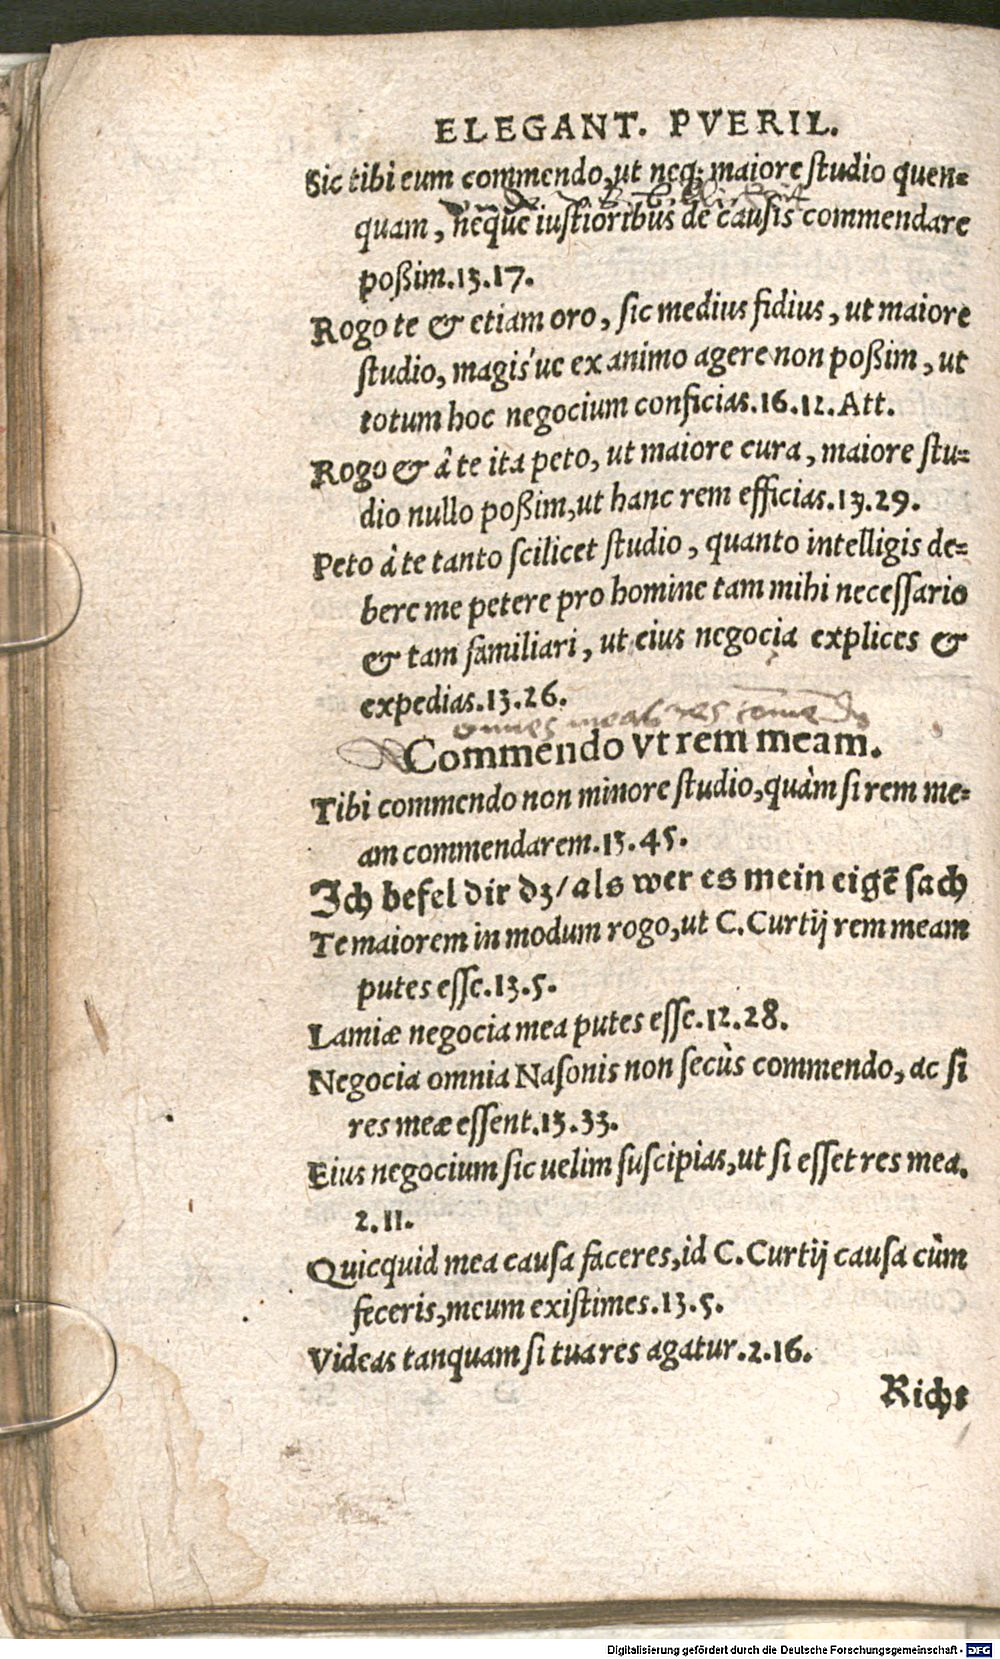 ELEGANT. PVERIL.
Sic tibi eum commendo, ut neq; maiore studio quen=
quam, neque iustioribus de causis commendare
poßim.13.17.
Rogo te & etiam oro, sic medius fidius, ut maiore
studio, magis'ue ex animo agere non poßim, ut
totum hoc negocium conficias.16.12.Att.
Rogo & â te ita peto, ut maiore cura, maiore stu=
dio nullo poßim, ut hanc rem efficias.13.29.
Peto â te tanto scilicet studio, quanto intelligis de=
bere me petere pro homine tam mihi necessario
& tam familiari, ut eius negocia explices &
expedias.13.26.
omnes meas res
Commendo vt rem meam.
Tibi commendo non minore studio, quàm si rem me=
am commendarem.13.45.
Ich befel dir dz/als wer es mein eigẽ sach
Te maiorem in modum rogo, ut C.Curtij rem meam
putes esse.13.5.
Lamiæ negocia mea putes esse.12.28.
Negocia omnia Nasonis non secùs commendo, ac si
res meæ essent.13.33.
Eius negocium sic uelim suscipias, ut si esset res mea.
2.11.
Quicquid mea causa faceres, id C.Curtij causa cùm
feceris, meum existimes.13.5.
Videas tanquam si tua res agatur.2.16.
Richs
Digitalisierung gefördert durch die Deutsche Forschungsgemeinschaft - DFG